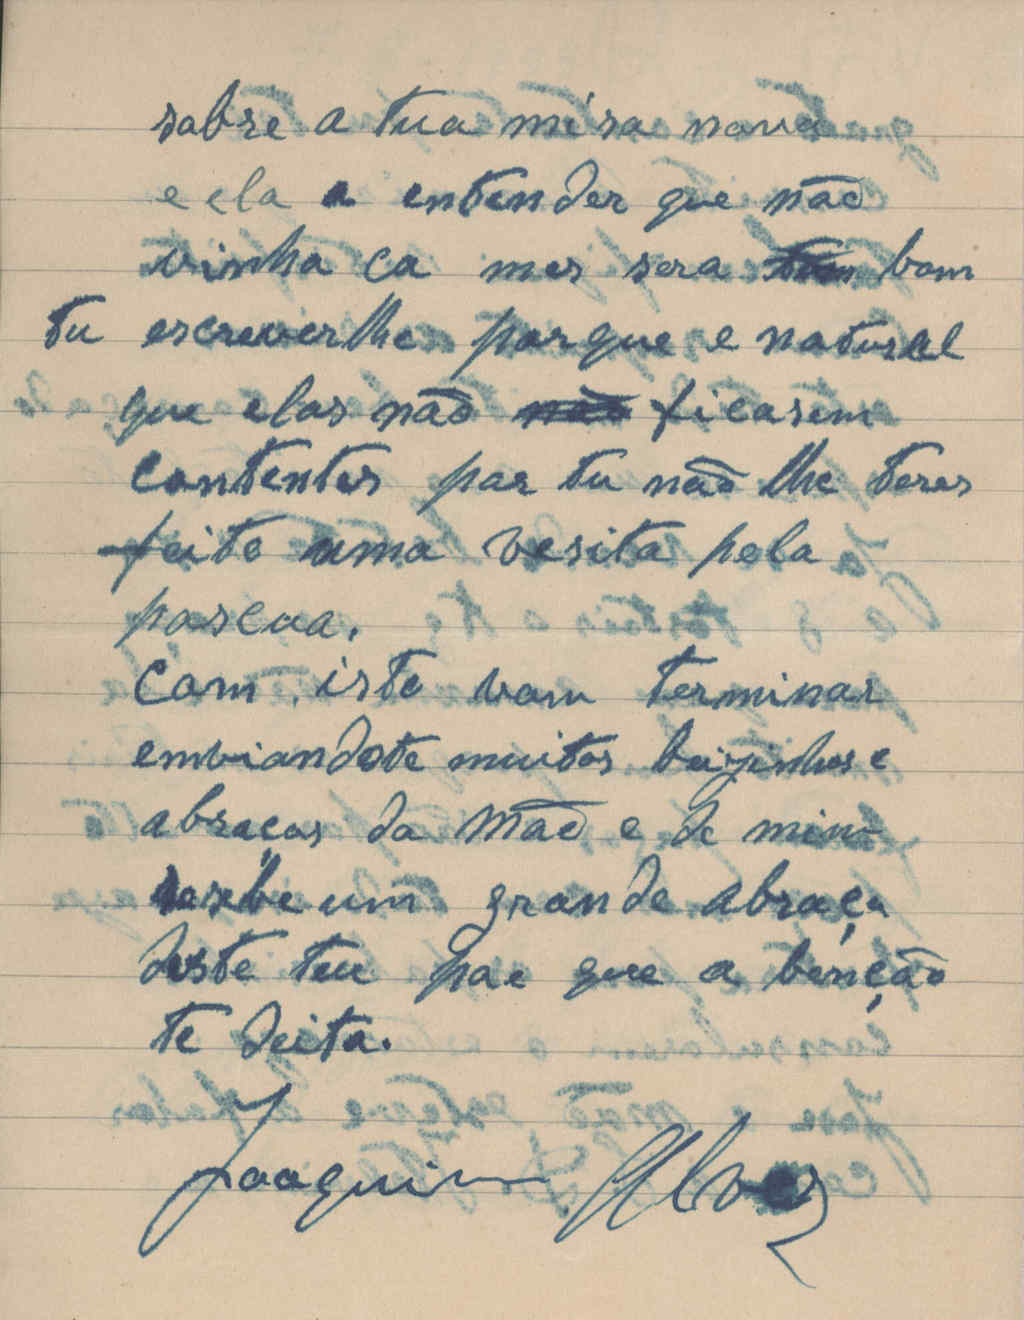 sobre a tua misa nova
e ela a entender que não
vinha ca mas sera bom
tu escreverlhe porque e natural
que elas não não ficasem
contentes por tu não lhe teres
feito uma vesita pela
pascua.
Com isto vou terminar
embiandote muitos beijinhos e
abraços da Mãe e de mim
resebe um grande abraço
deste teu pae que a benção
te deita.
Joaquim Alves